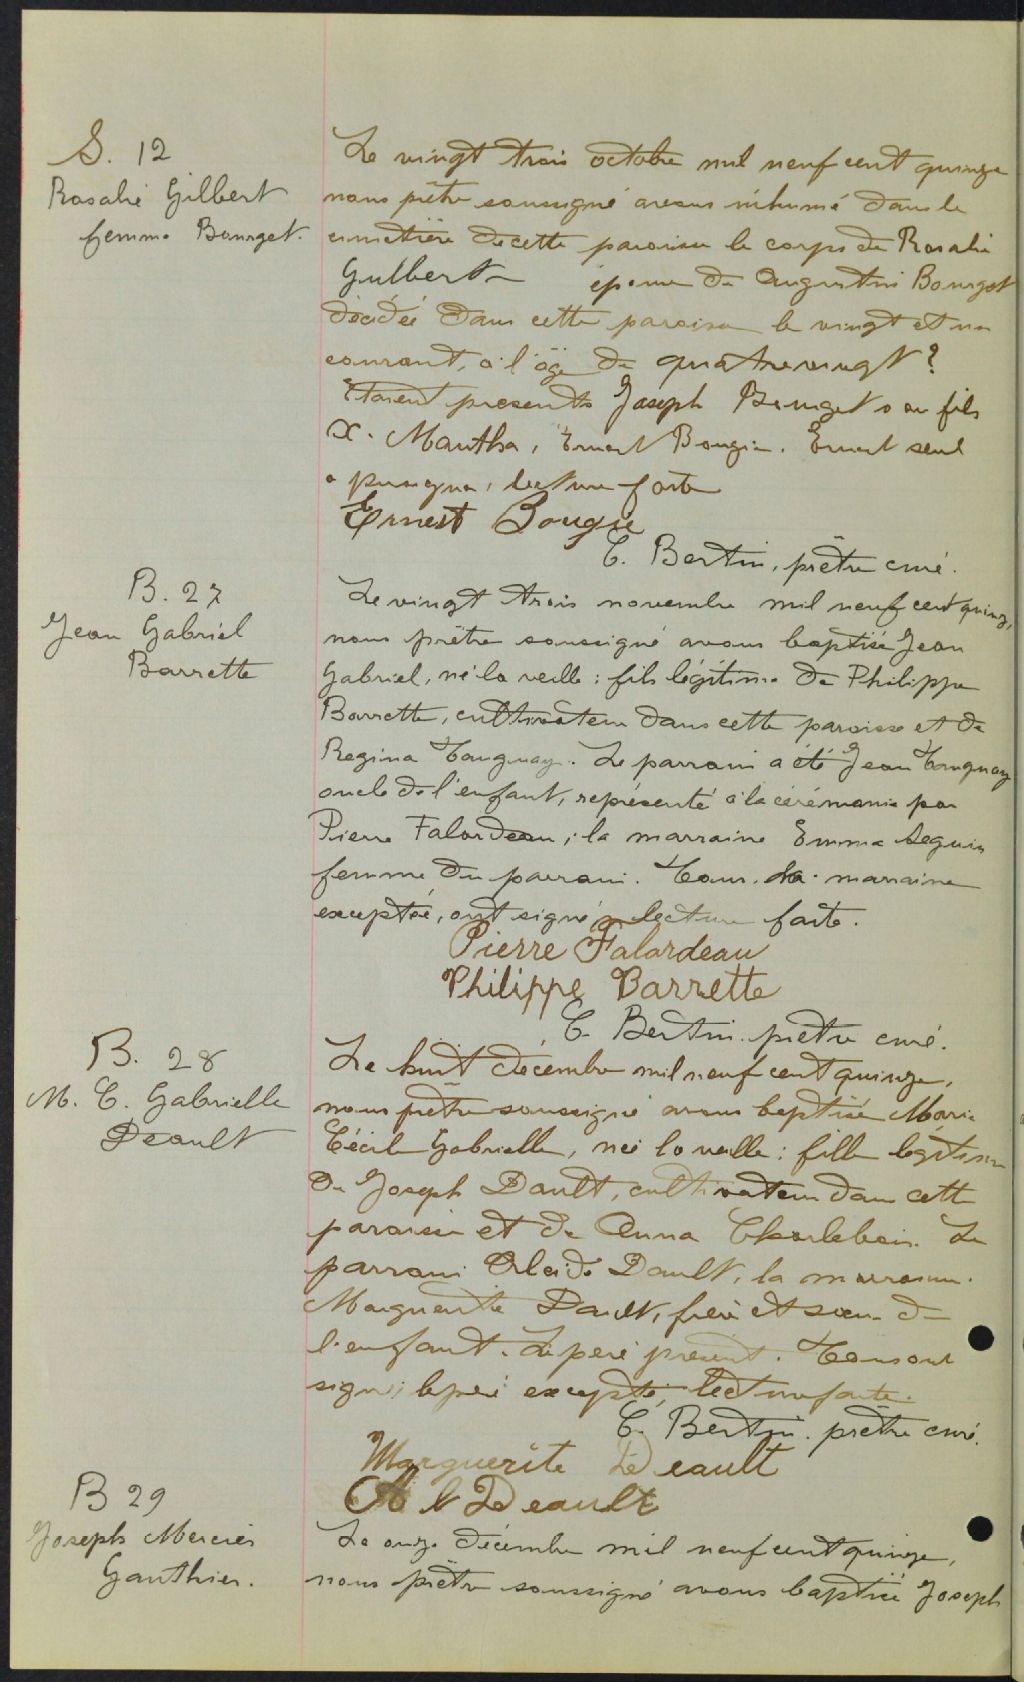 S. 12
Rosalie Gilbert
femme Bourget.
Le vingt trois octobre mil neuf cent quinze
nous prêtre soussigné avons inhumé dans le
cimetière de cette paroisse le corps de Rosalie
Gilbert épouse de Augustin Bourget
décédée dans cette paroisse le vingt et un
courant, à l'âge de quatre vingt ?
Etaient presents Joseph Bourget son fils
X. Mantha, Ernest Bougie. Ernest seul
a lecture faite
Ernest Bougie
C. Bertin, prêtre curé.
B. 27
Jean Gabriel
Barrette
Le vingt trois novembre mil neuf cent quinze,
nous prêtre soussigné avons baptisé Jean
Gabriel, né la veille : fils légitime de Philippe
Barrette, cultivateur dans cette paroisse et de
Regina Tanguay. Le parrain a été Jean Tanguay
oncle de l'enfant, représenté à la cérémonie par
Pierre Falardeau ; la marraine Emma Seguin
femme du parrain. Tous, la marraine
exceptée, ont signé lecture faite.
Pierre Falardeau
Philippe Barrette
C. Bertin. prêtre curé.
B. 28
M. C. Gabrielle
Deault
Le huit décembre mil neuf cent quinze,
nous prêtre soussigné avons baptisé Marie
Cécile Gabrielle, née la veille : fille légitime
de Joseph Dault, cultivateur dans cette
paroisse et de Anna Charlebois. Le
parrain Dault, la marraine
Marguerite Dault, frère et soeur de
l'enfant. Le père présent. Tous ont
signé, le père excepté, lecture faite.
C. Bertin. prêtre curé.
Marguerite Déeault
Deault
B 29
Joseph Mercier
Gauthier.
Le onze décembre mil neuf cent quinze,
nous prêtre soussigné avons baptisé Joseph